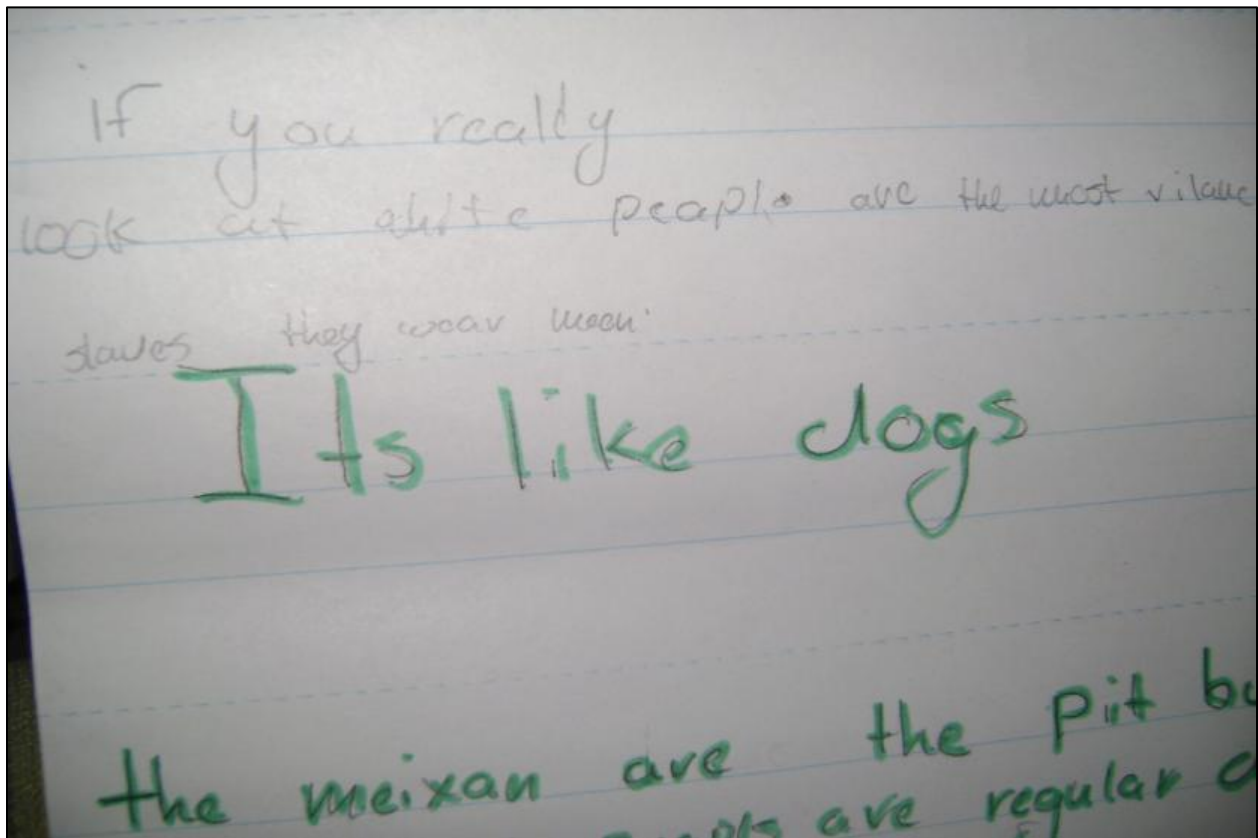 if you really
look at white peaple are the most vilanc
slaves they wear meen.
Its like dogs
the meixan are the pit bu
are regular d